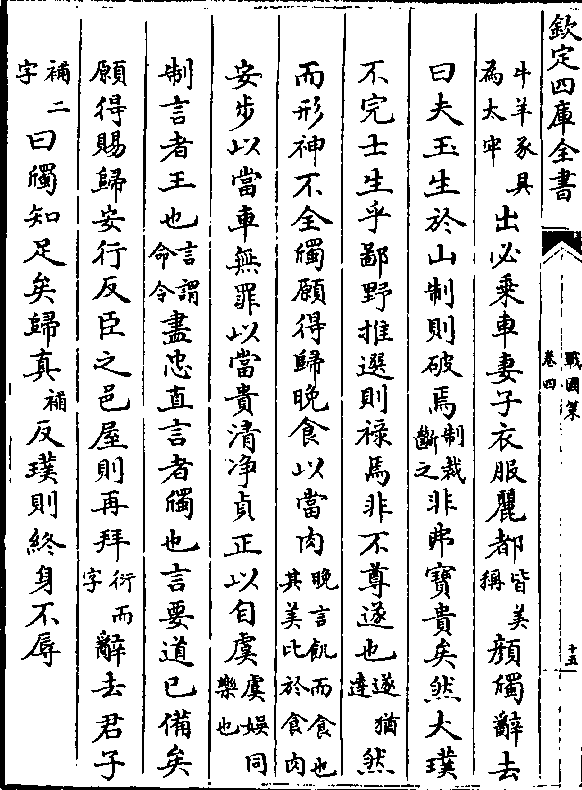 欽定四庫全書
戰國策
卷四
十五
牛羊豕具為太牢出必乗車妻子衣服麗都皆美稱顔斶辭去
曰夫玉生於山制則破焉制裁斷之非弗寶貴矣然大璞
不完士生乎鄙野推選則祿焉非不尊遂也遂猶達然
而形神不全斶願得歸晚食以當肉晚言飢而食也其美比於食肉
安步以當車無罪以當貴清净貞正以自虞虞娛同樂也
制言者王也言謂命令盡忠直言者斶也言要道已備矣
願得賜歸安行反臣之邑屋則再拜衍而字辭去君子
補二字曰斶知足矣歸真補反璞則終身不辱